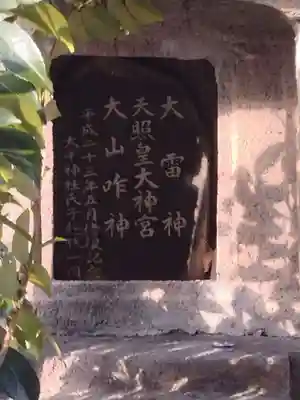 大雷神
天照皇大神宮
大山咋神
平成二十三年五月
神社氏子